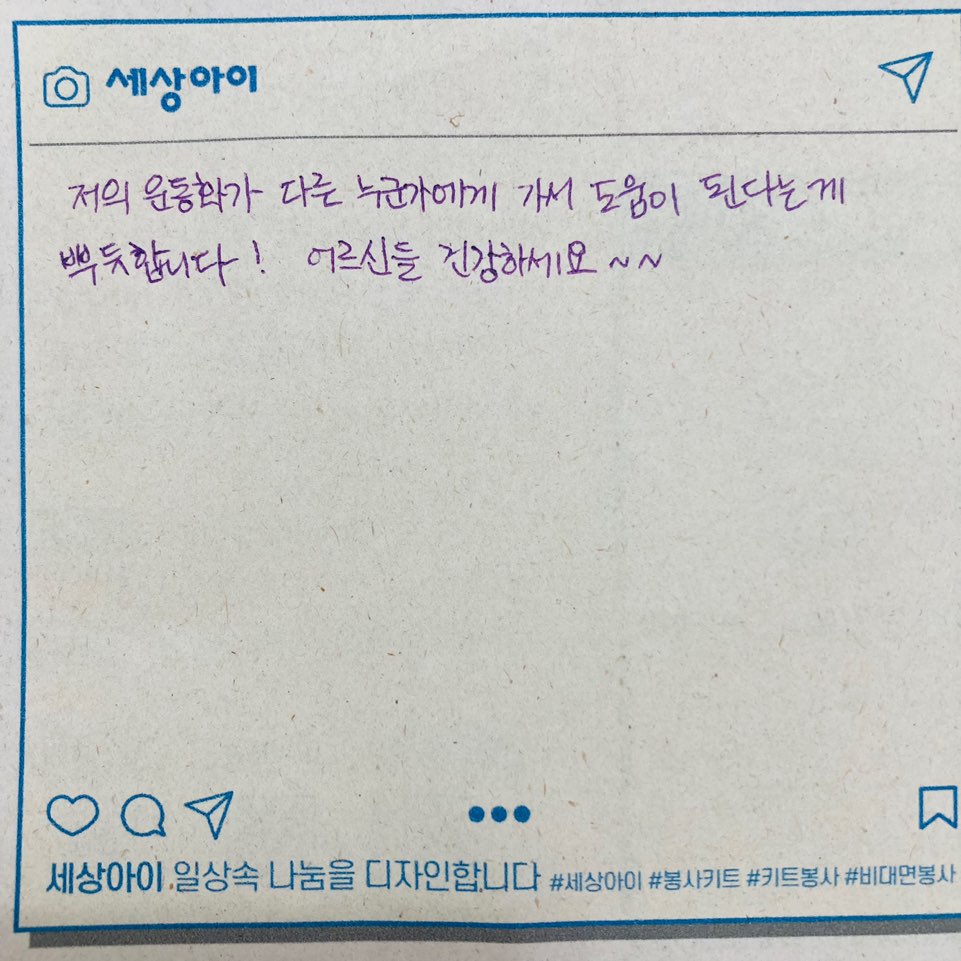 세상아이
저의 운동화가 다른 누군가에게 가서 도움이 된다는게
뿌듯합니다! 어르신들 건강하세요~~
세상아이 일상속 나눔을 디자인합니다 #세상아이 #봉사키트 #키트봉사 #비대면봉사